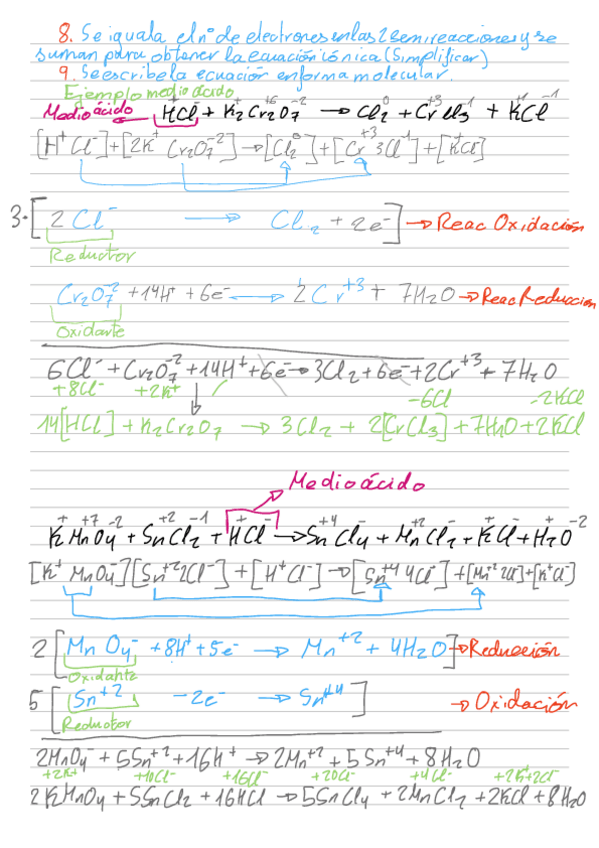 8. Se iguala el nº de electrones en las 2 semirreacciones y se
suman para obtener la ecuación iónica (Simplificar)
9. Se escribe la ecuación en forma molecular.
Ejemplo medio ácido
Medio ácido ← H⁺Cl⁻ + K⁺₂Cr⁺⁶₂O₇⁻² → Cl₂⁰ + Cr⁺³Cl₃⁻¹ + K⁺Cl⁻¹
[H⁺ Cl⁻] + [2K⁺ Cr₂O₇⁻²] → [Cl₂⁰] + [Cr⁺³ 3Cl⁻¹] + [KCl]
3· [2 Cl⁻ → Cl₂ + 2e⁻] → Reac Oxidación
Reductor
Cr₂O₇⁻² + 14H⁺ + 6e⁻ → 2Cr⁺³ + 7H₂O → Reac Reduccion
Oxidante
6Cl⁻ + Cr₂O₇⁻² + 14H⁺ + 6e⁻ → 3Cl₂ + 6e⁻ + 2Cr⁺³ + 7H₂O
+8Cl⁻ +2K⁺ -6Cl -2KCl
14[HCl] + K₂Cr₂O₇ → 3Cl₂ + 2[CrCl₃] + 7H₂O + 2KCl
Medio ácido
K⁺Mn⁺⁷O₄⁻² + Sn⁺²Cl₂⁻¹ + H⁺Cl⁻ → Sn⁺⁴Cl₄⁻ + Mn⁺²Cl₂⁻ + K⁺Cl⁻ + H₂⁺O⁻²
[K⁺ MnO₄⁻] [Sn⁺²2Cl⁻] + [H⁺Cl⁻] → [Sn⁺⁴ 4Cl⁻] + [Mn⁺² 2Cl⁻] + [K⁺Cl⁻]
2 [MnO₄⁻ + 8H⁺ + 5e⁻ → Mn⁺² + 4H₂O] → Reducción
Oxidante
5 [Sn⁺² - 2e⁻ → Sn⁺⁴] → Oxidación
Reductor
2MnO₄⁻ + 5Sn⁺² + 16H⁺ → 2Mn⁺² + 5Sn⁺⁴ + 8H₂O
+2K⁺ +10Cl⁻ +16Cl⁻ +20Cl⁻ +4Cl⁻ +2K⁺2Cl⁻
2KMnO₄ + 5SnCl₂ + 16HCl → 5SnCl₄ + 2MnCl₂ + 2KCl + 8H₂O